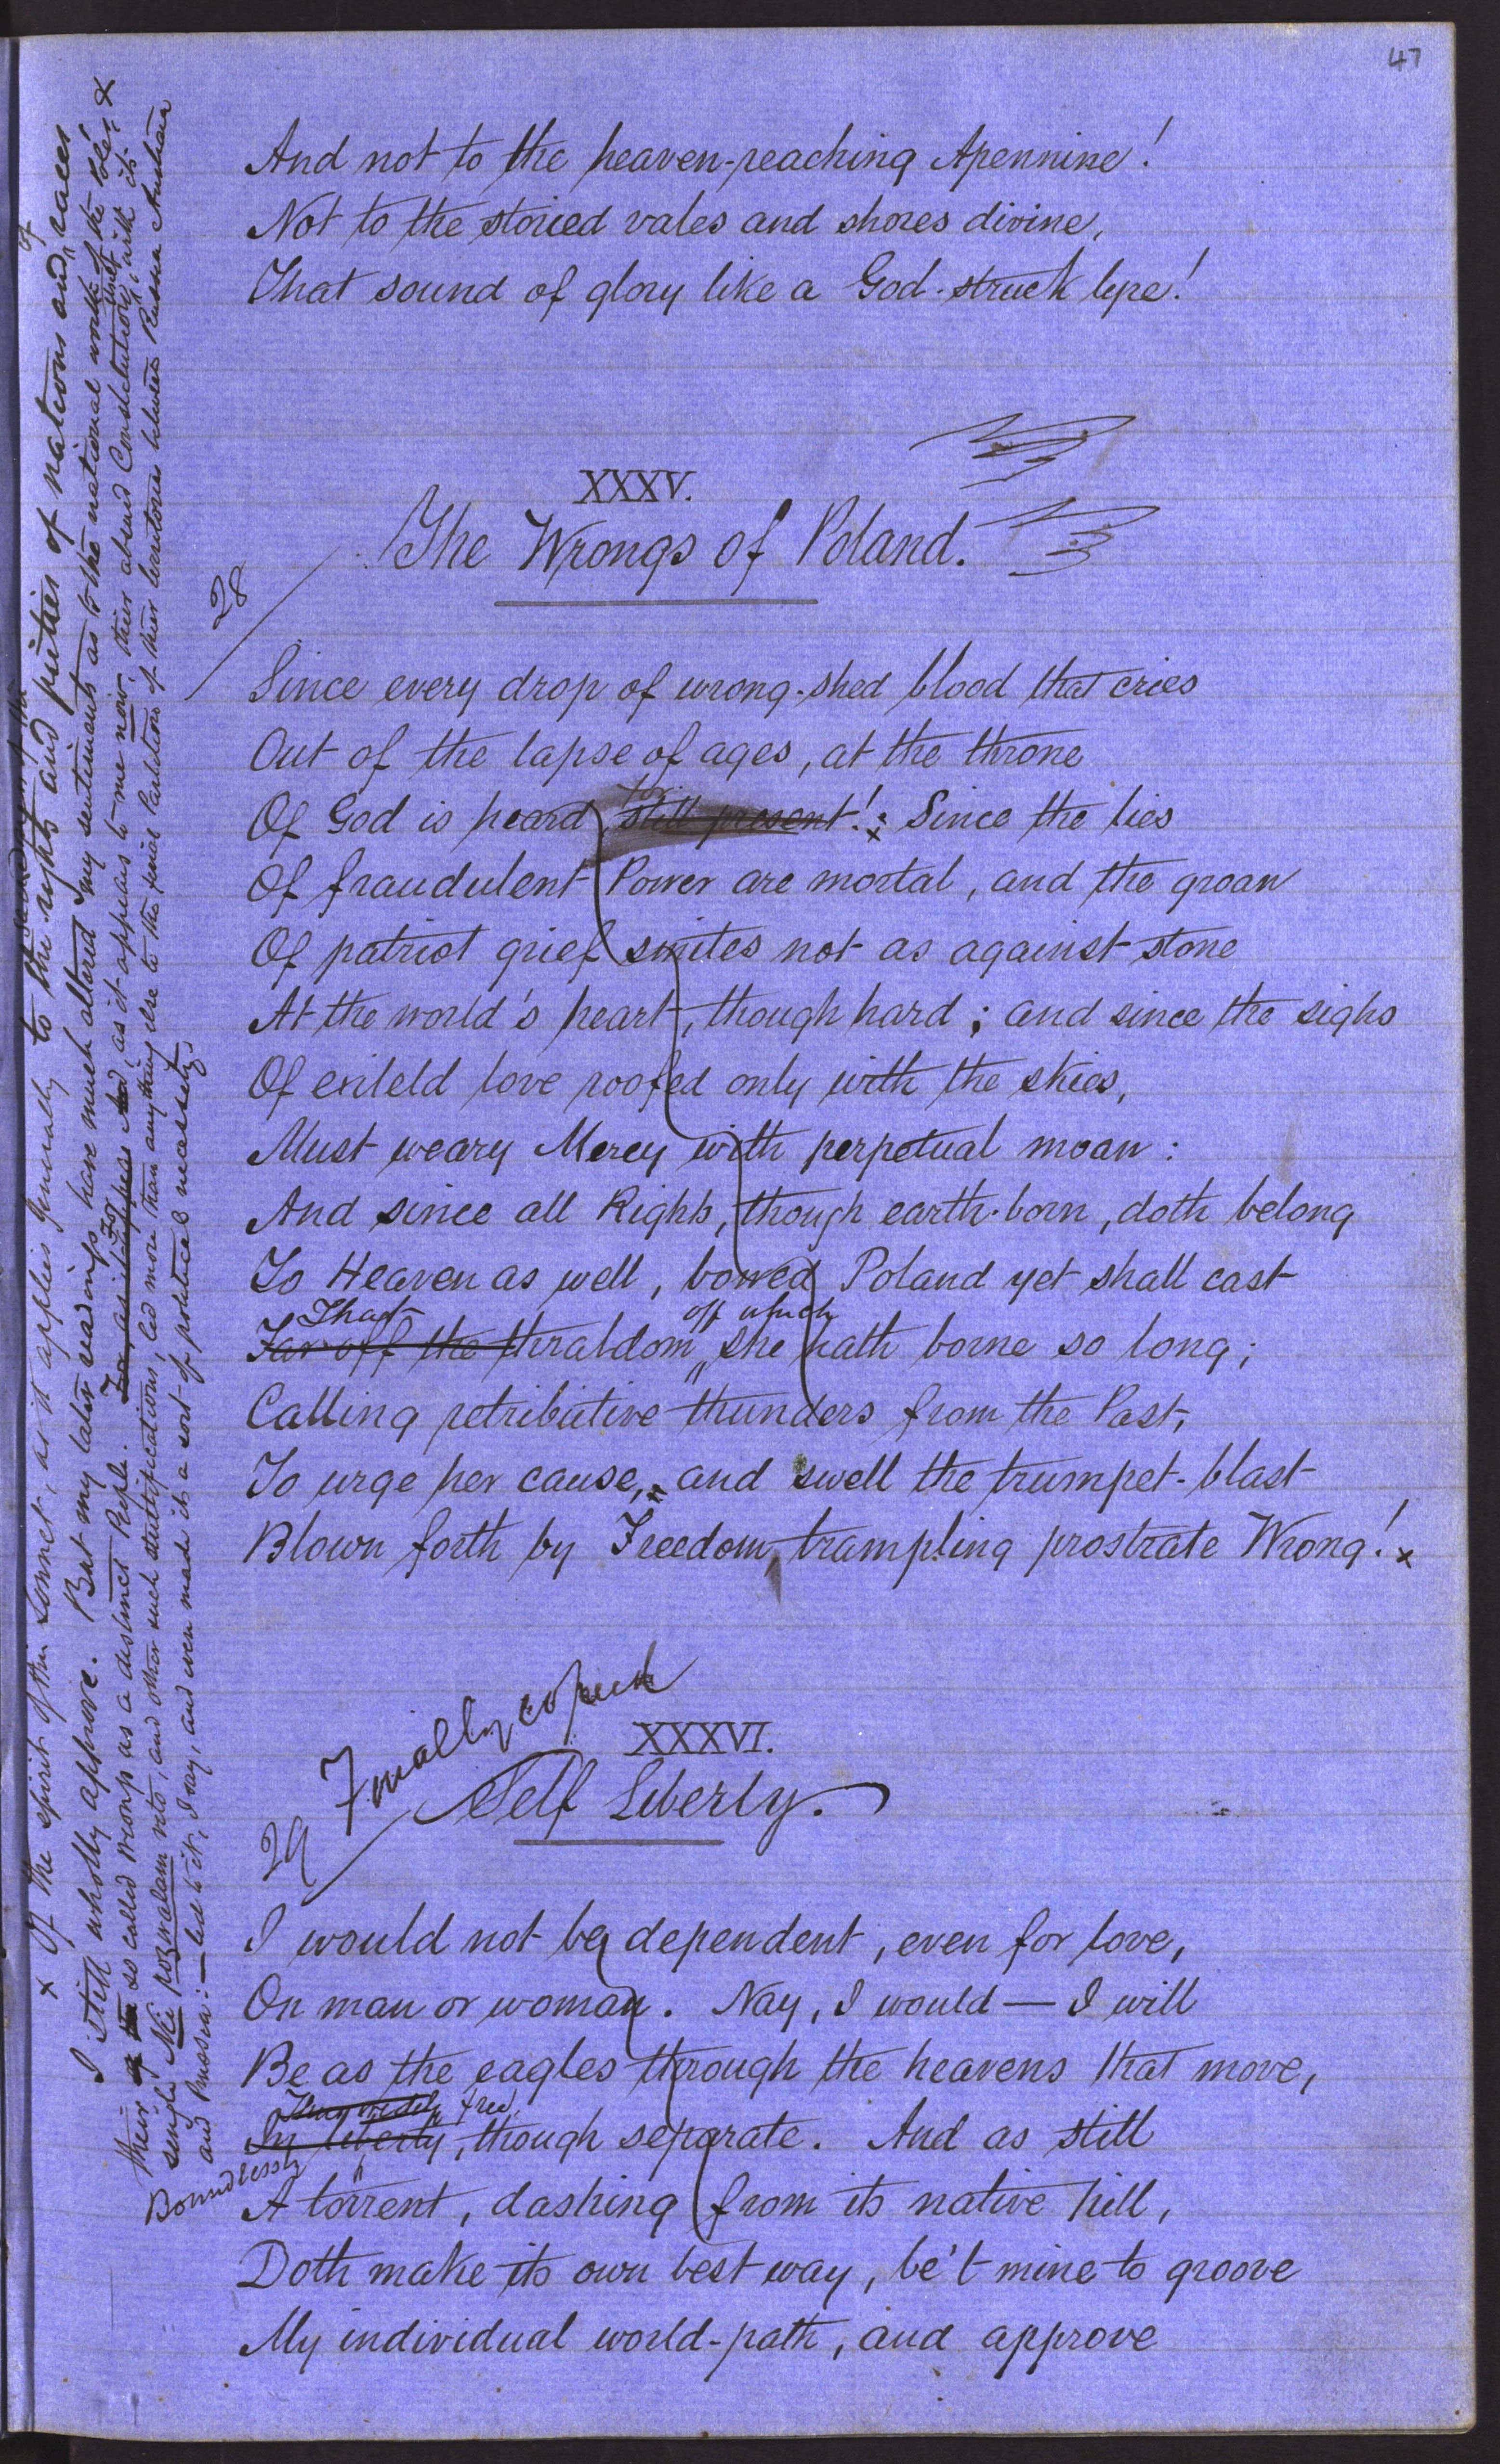 47
And not to the heaven-reaching Apennine!
Not to the storied vales and shores divine,
That sound of glory like a God-struck lyre!
XXXV.
The Wrongs of Poland.
28
Since every drop of wrong-shed blood that cries
Out of the lapse of ages, at the throne
Of God is heard, still present!: Since the lies
Of fraudulent Power are mortal, and the groan
Of patriot grief smites not as against stone
At the world's heart, though hard; and since the sighs
Of exileld love roofed only with the skies,
Must weary Mercy with perpetual moan:
And since all Right, though earth-born, doth belong
To Heaven as well, bowed Poland yet shall cast
That off which
Far off the thraldom she hath borne so long;
Calling retributive thunders from the Past,
To urge her cause, and swell the trumpet-blast
Blown forth by Freedom, trampling prostrate Wrong! x
Finally
XXXVI.
Self Liberty.
29
I would not be dependent, even for love,
On man or woman. Nay, I would — I will
Be as the eagles through the heavens that move,
free,
In liberty, though separate. And as still
Boundlessly
A torrent, dashing from its native hill,
Doth make its own best way, be't mine to groove
My individual world-path, and approve
x Of the spirit of this Sonnet, as it applies generally to the rights and pieties of nations and of races
I still wholly approve. But my later readings have much altered my sentiments as to the national worth of the Poles, &
their so called wrongs as a distinct People. For as it appears to me now, their absurd Constitution, with its
single Nie pozwalam veto, and other such stultifications, led more than anything else to the final Partition of their territories between Russia Austria
and Prussia: — led to it, I say, and even made it a sort of political necessity.